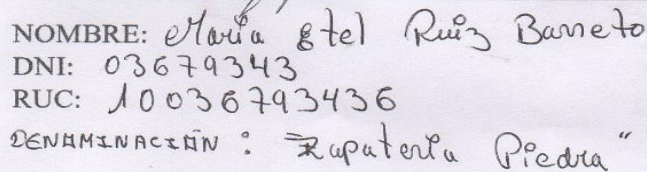 NOMBRE: María Etel Ruiz Barreto
DNI: 03679343
RUC: 10036793436
DENOMINACIÓN: Zapatería Piedra"